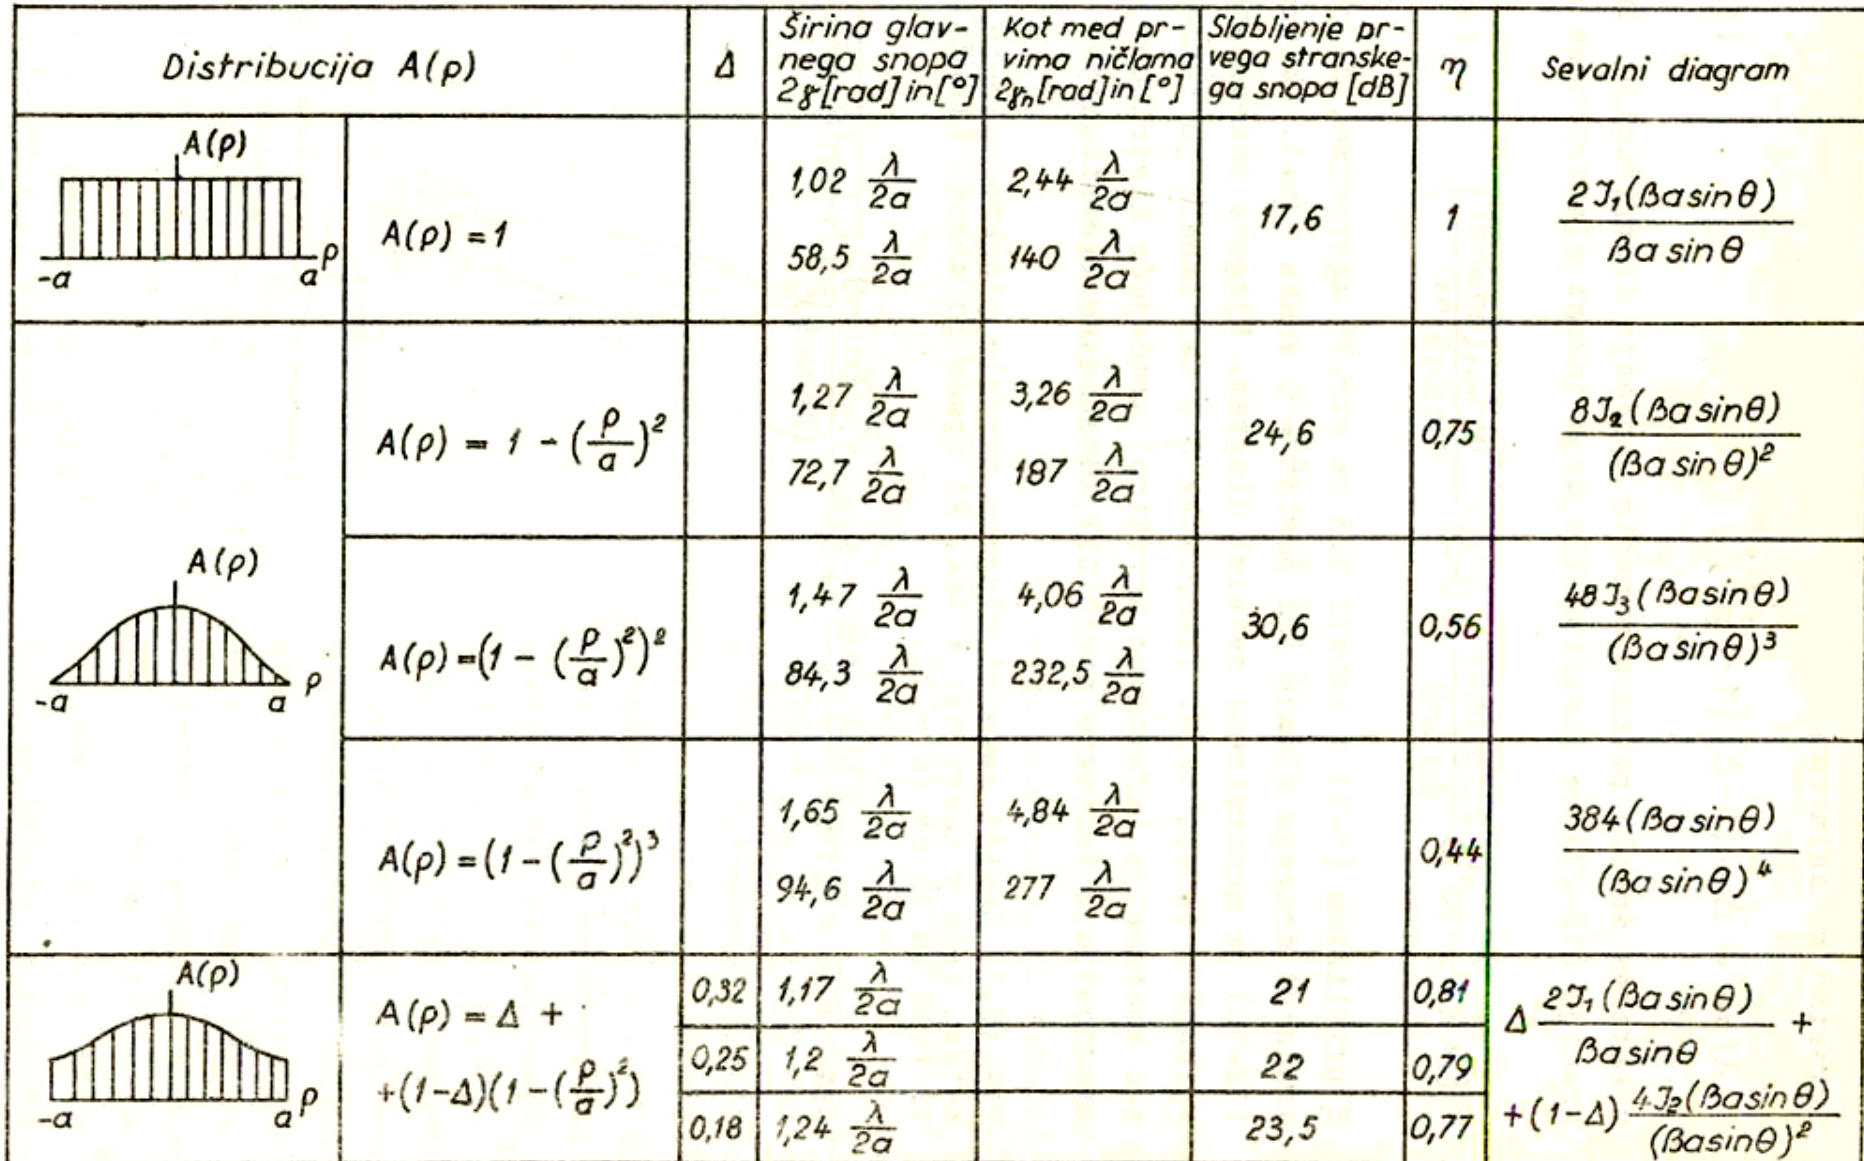 Distribucija A(ρ)
Δ
Širina glav-
nega snopa
2γ[rad]in[°]
Kot med pr-
vima ničlama
2γₙ[rad]in[°]
Slabljenje pr-
vega stranske-
ga snopa [dB]
η
Sevalni diagram
A(ρ)
-a a ρ
A(ρ) = 1
1,02 λ/2a
58,5 λ/2a
2,44 λ/2a
140 λ/2a
17,6
1
2J₁(βa sinθ) / βa sinθ
A(ρ)
-a a ρ
A(ρ) = 1 - (ρ/a)²
1,27 λ/2a
72,7 λ/2a
3,26 λ/2a
187 λ/2a
24,6
0,75
8J₂(βa sinθ) / (βa sinθ)²
A(ρ) = (1 - (ρ/a)²)²
1,47 λ/2a
84,3 λ/2a
4,06 λ/2a
232,5 λ/2a
30,6
0,56
48J₃(βa sinθ) / (βa sinθ)³
A(ρ) = (1 - (ρ/a)²)³
1,65 λ/2a
94,6 λ/2a
4,84 λ/2a
277 λ/2a
0,44
384(βa sinθ) / (βa sinθ)⁴
A(ρ)
-a a ρ
A(ρ) = Δ +
+(1-Δ)(1-(ρ/a)²)
0,32 1,17 λ/2a 21 0,81
0,25 1,2 λ/2a 22 0,79
0,18 1,24 λ/2a 23,5 0,77
Δ 2J₁(βa sinθ) / βa sinθ +
+(1-Δ) 4J₂(βa sinθ) / (βa sinθ)²